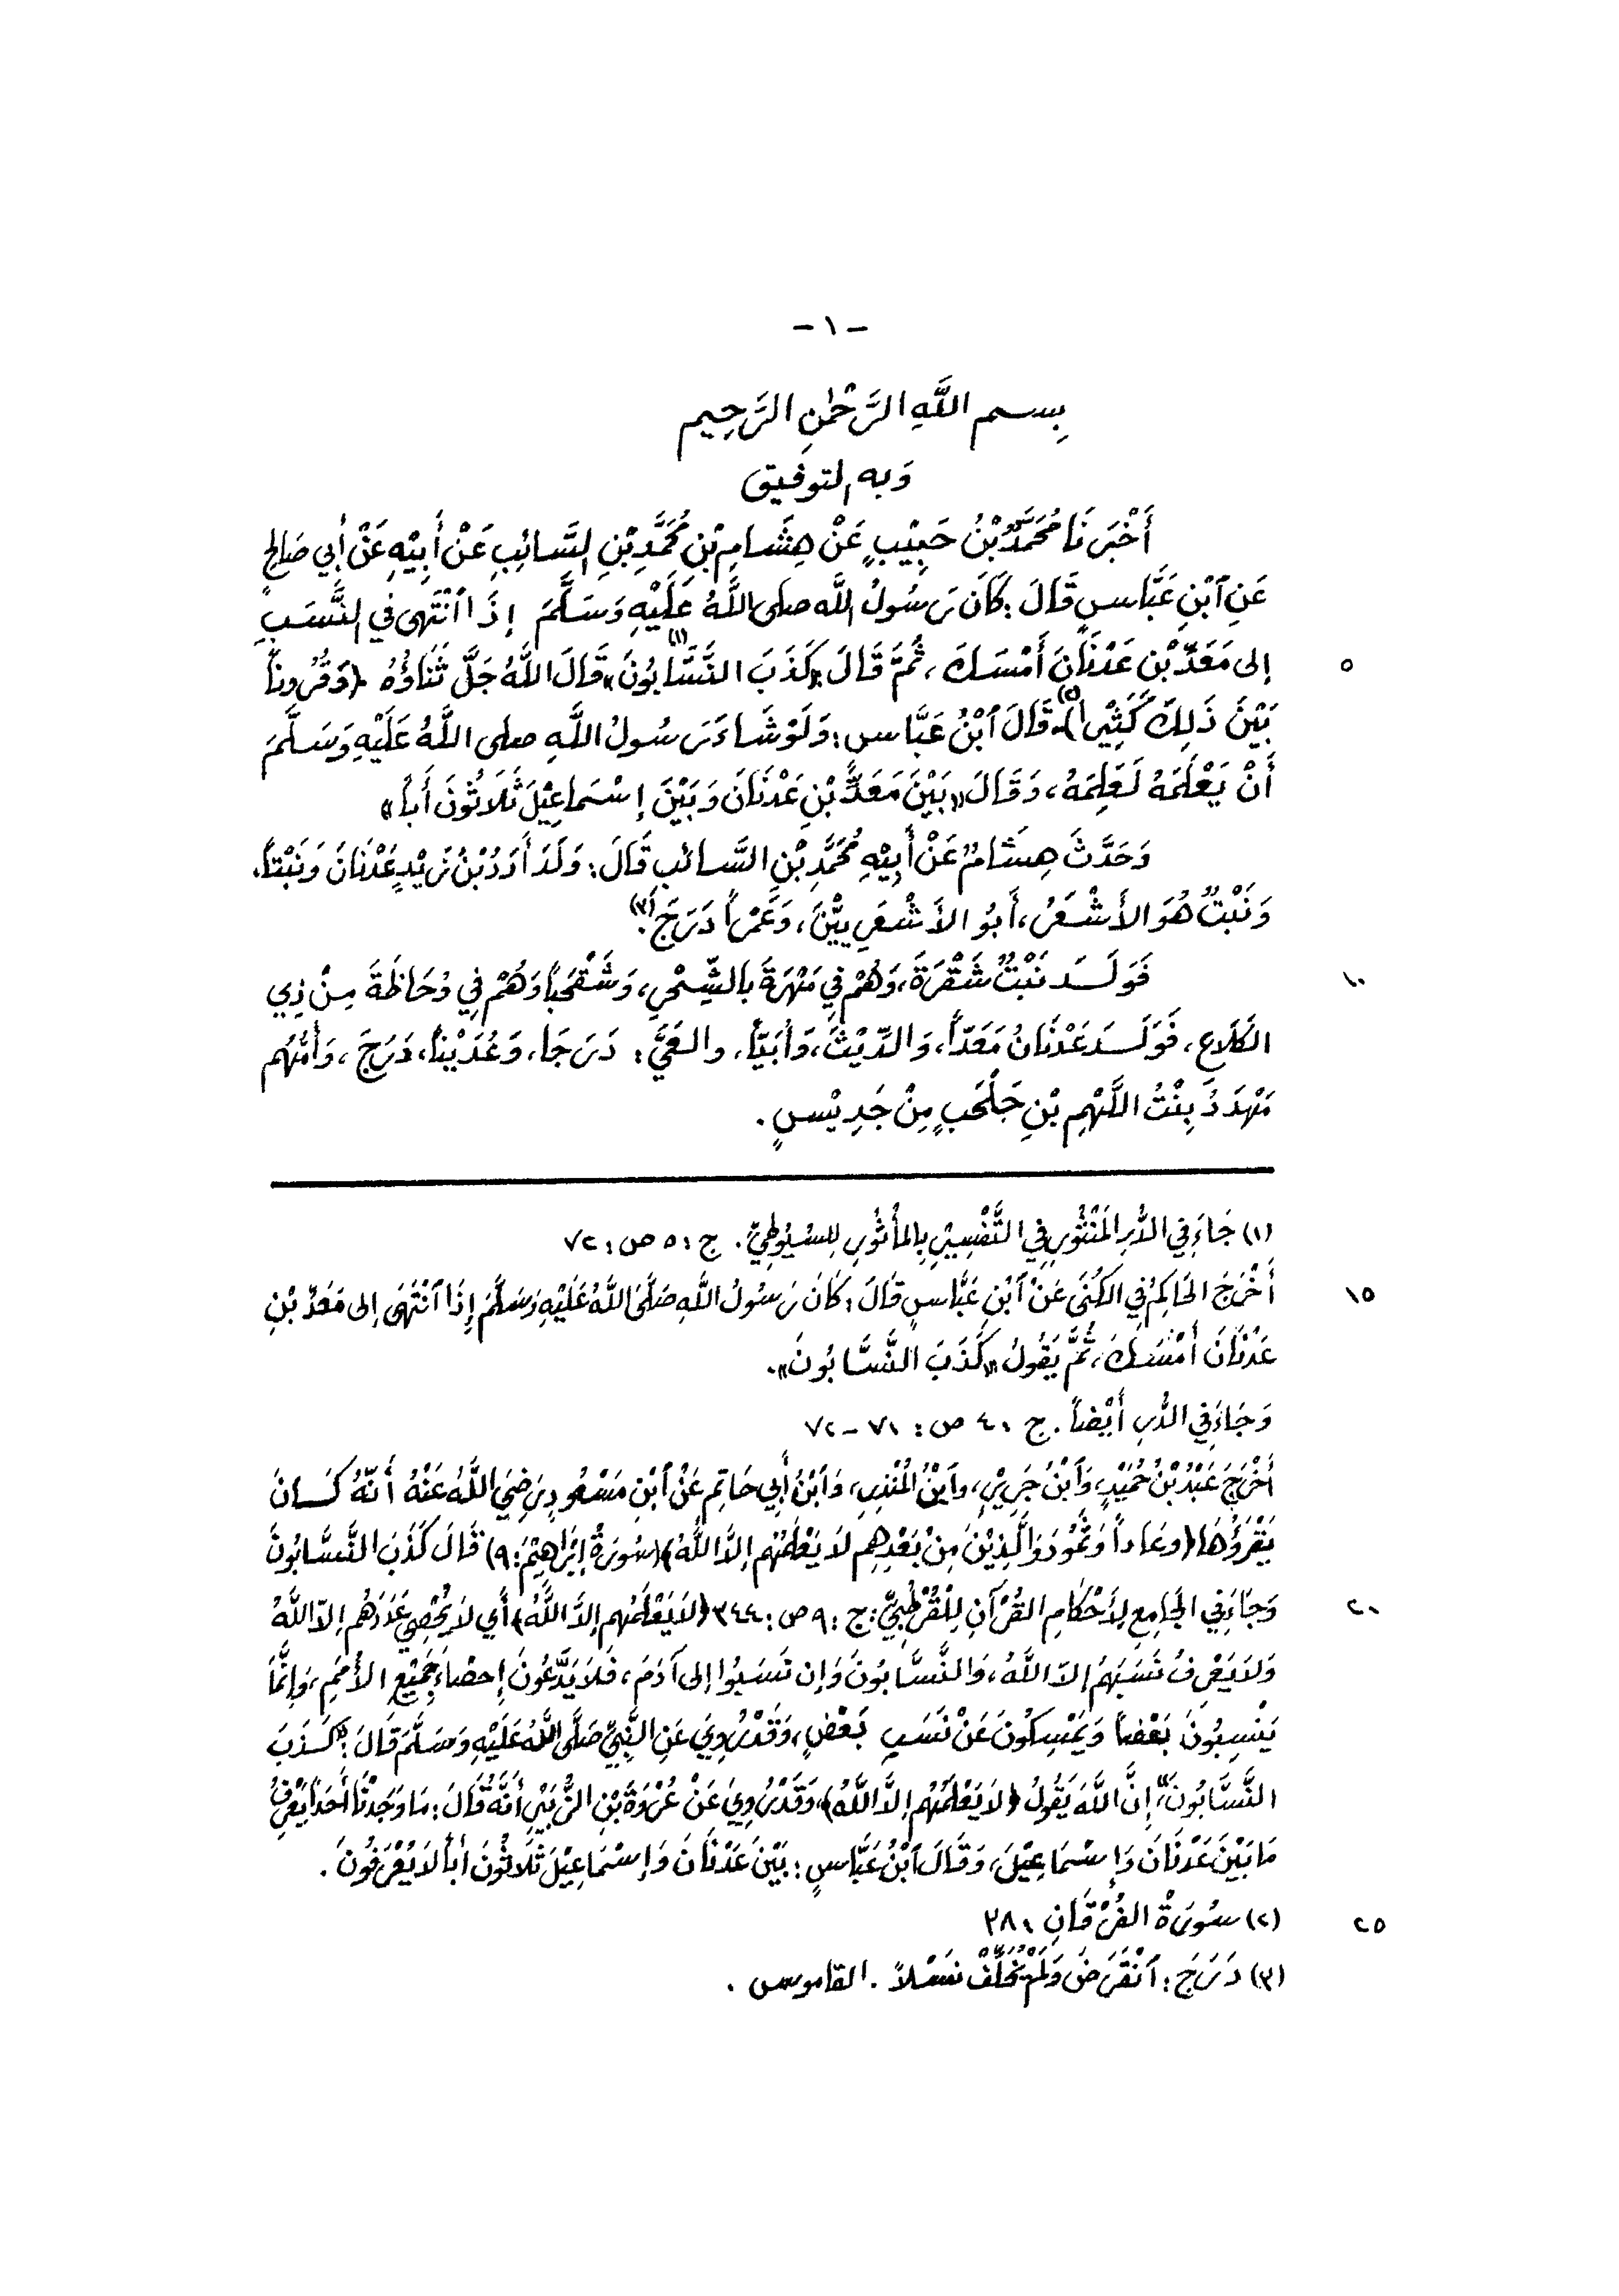 - ١ -
بِسم اللَّهِ الرَّحْمٰنِ الرَّحِيم
وَبه التوفيق
أَخْبَرَنَا مُحَمَّدُ بْنُ حَبِيْبٍ عَنْ هِشَامِ بْنِ مُحَمَّدِ بْنِ السَّائِبِ عَنْ أَبِيْهِ عَنْ أَبِي صَالِحٍ
عَنِ ٱبْنِ عَبَّاسٍ قَالَ : كَانَ رَسُولُ اللَّه صلى اللَّهُ عَلَيْهِ وَسَلَّمَ إذَا ٱنْتَهَى فِي النَّسَبِ
إلى مَعَدِّ بْنِ عَدْنَانَ أَمْسَكَ ، ثُمَّ قَالَ «كَذَبَ النَّسَّابُونَ»(١) قَالَ اللَّهُ جَلَّ ثَنَاؤُهُ ﴿وَقُرُوناً ٥
بَيْنَ ذَلِكَ كَثِيْراً﴾(٢) قَالَ ٱبْنُ عَبَّاسٍ : وَلَوْ شَاءَ رَسُولُ اللَّهِ صلى اللَّهُ عَلَيْهِ وَسَلَّمَ
أَنْ يَعْلَمَهُ لَعَلِمَهُ ، وَقَالَ «بَيْنَ مَعَدِّ بْنِ عَدْنَانَ وَبَيْنَ إِسْمَاعِيْلَ ثَلَاثُونَ أَباً»
وَحَدَّثَ هِشَامٌ عَنْ أَبِيْهِ مُحَمَّدِ بْنِ السَّائبِ قَالَ : وَلَدَ أُدَدُ بْنُ زَيْدٍ عَدْنَانَ وَنَبْتاً،
وَنَبْتٌ هُوَ الأَشْعَرُ ، أَبُو الأَشْعَرِيِّيْنَ ، وَعَمْراً دَرَجَ(٣).
فَوَلَـدَ نَبْتٌ شَقْرَةَ ، وَهُمْ فِي مَهْرَةَ بَالشِّحْرِ ، وَشَقْحَباً وَهُمْ فِي وُحَاظَةَ مِنْ ذِي ١٠
الكَلَاعِ ، فَوَلَـدَ عَدْنَانُ مَعَدّاً ، وَالدِّيْثَ ، وَأُبَيّاً ، والعَيَّ ؛ دَرَجَا ، وَعُدَيْناً ، دَرَجَ ، وَأُمُّهُم
مَهْدَدُ بِنْتُ اللَّهْمِ بْنِ جَلْحَبٍ مِنْ جَدِيْسٍ .
(١) جَاءَ فِي الدُّرِّ المَنْثُوْرِ فِي التَّفْسِيْرِ بِالمَأْثُوْرِ لِلسُّيُوْطِيِّ . ج : ٥ ص : ٧٢
أَخْرَجَ الحَاكِمُ فِي الكُنَى عَنْ ٱبْنِ عَبَّاسٍ قَالَ : كَانَ رَسُولُ اللَّهِ صَلَّى اللَّهُ عَلَيْهِ وَسَلَّمَ إِذَا ٱنْتَهَى إلى مَعَدِّ بْنِ ١٥
عَدْنَانَ أَمْسَكَ ، ثُمَّ يَقُولُ «كَذَبَ النَّسَّابُونَ» .
وَجَاءَ فِي الدُّرِ أَيْضاً . ج : ٤ ص : ٧١ - ٧٢
أَخْرَجَ عَبْدُ بْنُ حُمَيْدٍ ، وَٱبْنُ جَرِيْرٍ ، وٱبنُ المُنْذِرِ ، وَٱبْنُ أَبِي حَاتِمٍ عَنْ ٱبْنِ مَسْعُودٍ رَضِيَ اللَّهُ عَنْهُ أَنَّهُ كَـانَ
يَقْرَؤُهَا ﴿وعَاداً وَثَمُودَ وَالَّذِيْنَ مِنْ بَعْدِهِم لَا يَعْلَمُهُم إلَّا اللَّهُ﴾ (سُورَةُ إِبْرَاهِيْمَ : ٩) قَالَ كَذَبَ النَّسَّابُونَ
وَجَاءَ فِي الجَامِعِ لِأَحْكَامِ القُرْآنِ لِلْقُرْطُبِيِّ : ج : ٩ ص : ٣٤٤ ﴿لَا يَعْلَمُهُم إلَّا اللَّهُ﴾ أَي لَا يُحْصِي عَدَدَهُم إلّا اللَّهُ ٢٠
وَلَا يَعْرِفُ نَسَبَهُمْ إلّا اللَّهُ ، وَالنَّسَّابُونَ وَإن نَسَبُوا إلى آدَمَ ، فَلَا يَدَّعُونَ إِحصَاءَ جَمِيْعِ الأُمَمِ ، وَإِنَّمَا
يَنْسِبُونَ بَعْضاً وَيَمْسِكُونَ عَنْ نَسَبِ بَعْضٍ ، وَقَدْ رُوِيَ عَنِ النَّبِيِّ صَلَّى اللَّهُ عَلَيْهِ وَسَلَّمَ قَالَ : «كَـذَبَ
النَّسَّابُونَ» إِنَّ اللَّهَ يَقُولُ ﴿لَا يَعْلَمُهُم إلَّا اللَّهُ﴾، وَقَدْ رُوِيَ عَنْ عُرْوَةَ بْنِ الزُّبَيْرِ أَنَّهُ قَالَ : مَا وَجَدْنَا أَحَداً يَعْرِفُ
مَا بَيْنَ عَدْنَانَ وَإسْمَاعِيْلَ ، وَقَالَ ٱبْنُ عَبَّاسٍ : بَيْنَ عَدْنَانَ وَإسْمَاعِيْلَ ثَلَاثُونَ أَباً لَا يُعْرَفُونَ .
(٢) سُورَةُ الفُرْقَانِ : ٣٨ ٢٥
(٣) دَرَجَ : ٱنْقَرَضَ وَلَمْ يُخَلِّفْ نَسْلاً . القاموس .